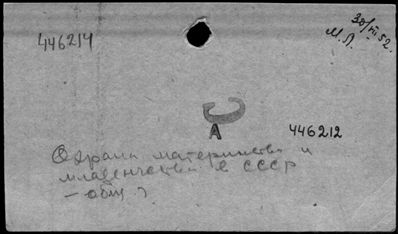 446214
30/VII 52.
М. Л.
А
446212
Охрана материнства и
младенчества в СССР
– общ